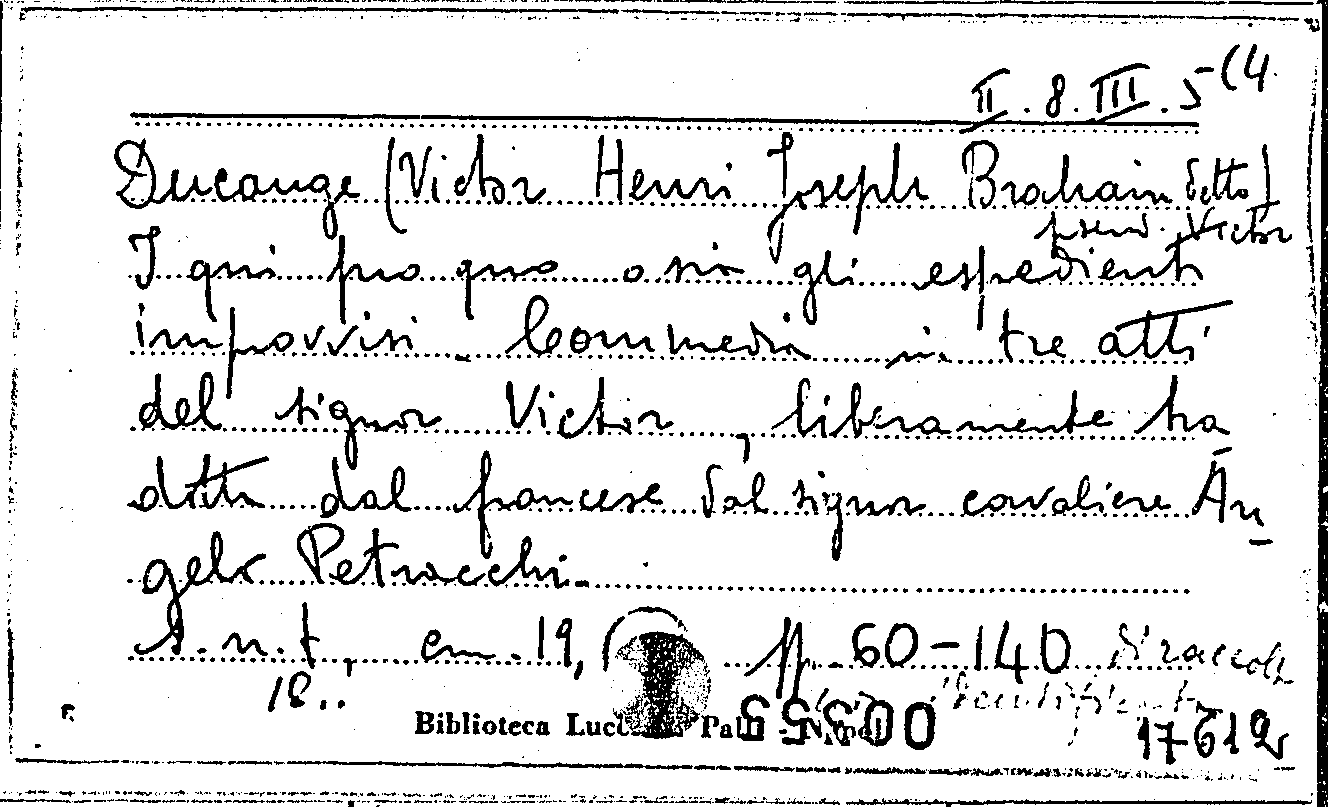 II.8.III.5(4
Ducange (Victor Henri Joseph Brahain detto)
pseud. Victor
I qui pro quo o sia gli espedienti
improvvisi. Commedia in tre atti
del signor Victor, liberamente tra
dotta dal francese dal signor cavaliere An
gelo Petracchi.
s.n.t, cm.19, pp. 60-140 di raccolta
18..
Biblioteca Lucchesi Palli - Napoli
17612